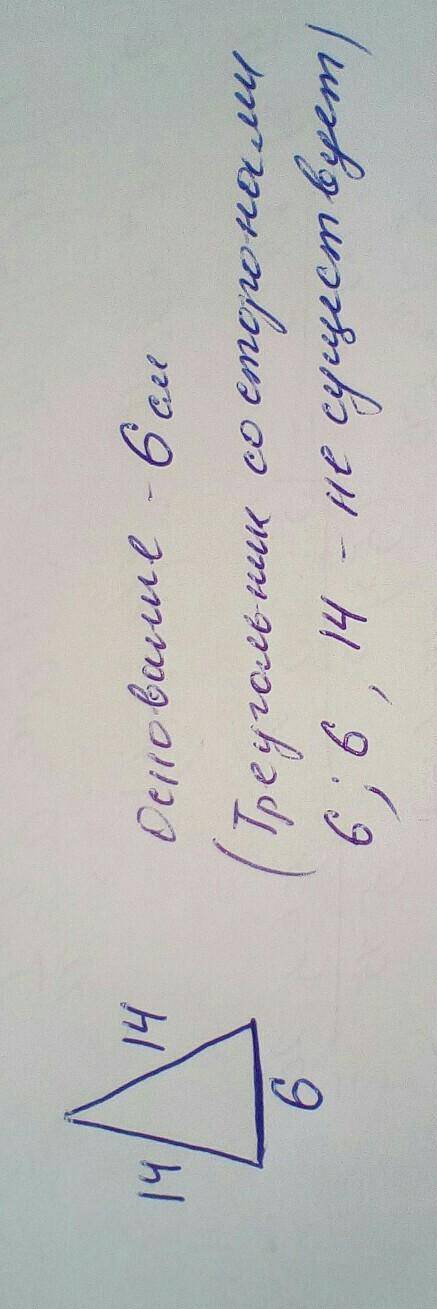 14
14
6
Основание - 6 см
(Треугольник со сторонами
6; 6, 14 - не существует)